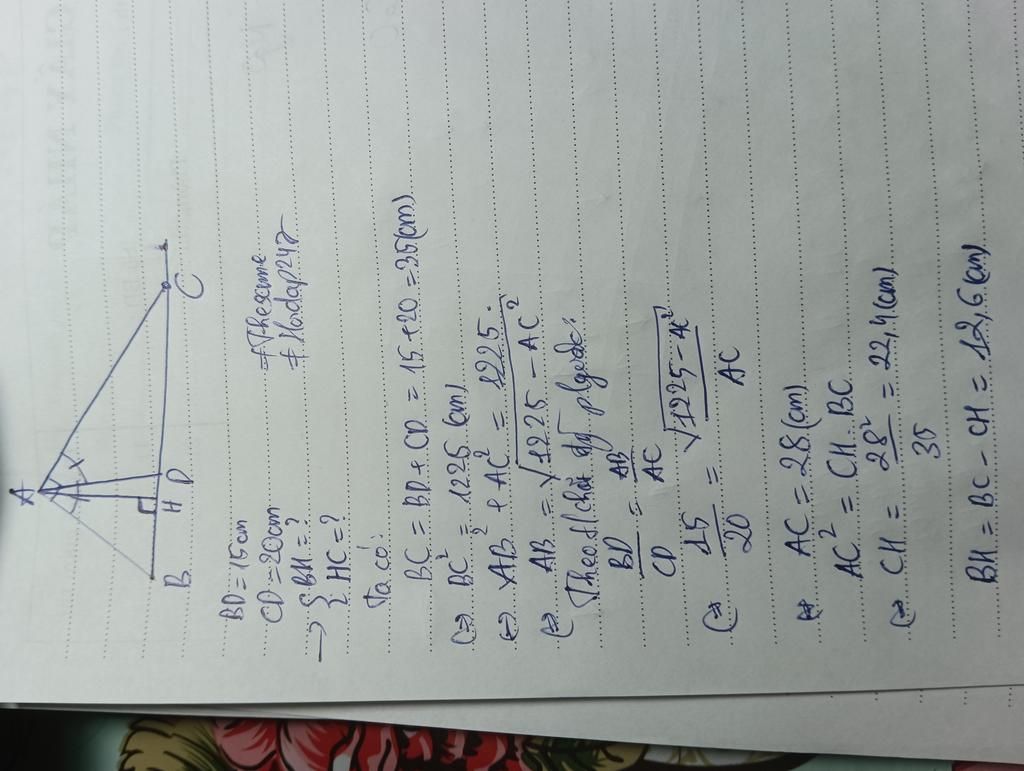 A
B H D C
BD = 15cm
CD = 20cm
→ { BH = ?
{ HC = ?
Ta có:
BC = BD + CD = 15 + 20 = 35 (cm)
(=) BC² = 1225 (cm)
(=) AB² + AC² = 1225.
(=) AB = √1225 - AC²
Theo t/chất
BD/CD = AB/AC
(=) 15/20 = √1225 - AC²/AC
(=) AC = 28 (cm)
AC² = CH. BC
(=) CH = 28²/35 = 22,4 (cm)
BH = BC - CH = 12,6 (cm)